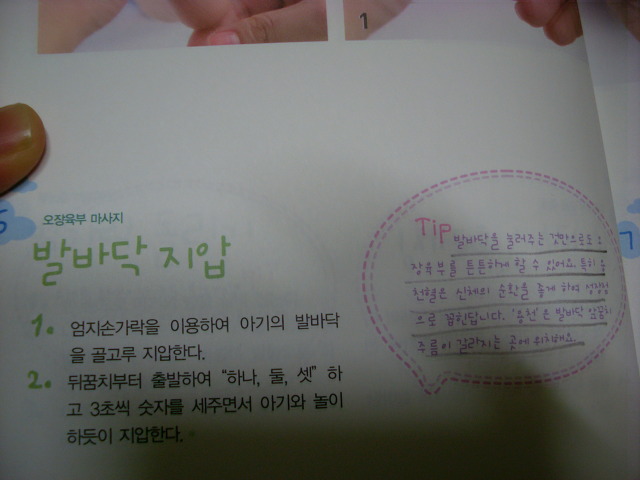 1
5
오장육부 마사지
발바닥 지압
1. 엄지손가락을 이용하여 아기의 발바닥
을 골고루 지압한다.
2. 뒤꿈치부터 출발하여 "하나, 둘, 셋" 하
고 3초씩 숫자를 세주면서 아기와 놀이
하듯이 지압한다.
Tip 발바닥을 눌러주는 것만으로도 오
장육부를 튼튼하게 할 수 있어요. 특히 용
천혈은 신체의 순환을 좋게 하여
으로 꼽힌답니다. '용천'은 발바닥 앞꿈치
주름이 갈라지는 곳에 위치해요.
7